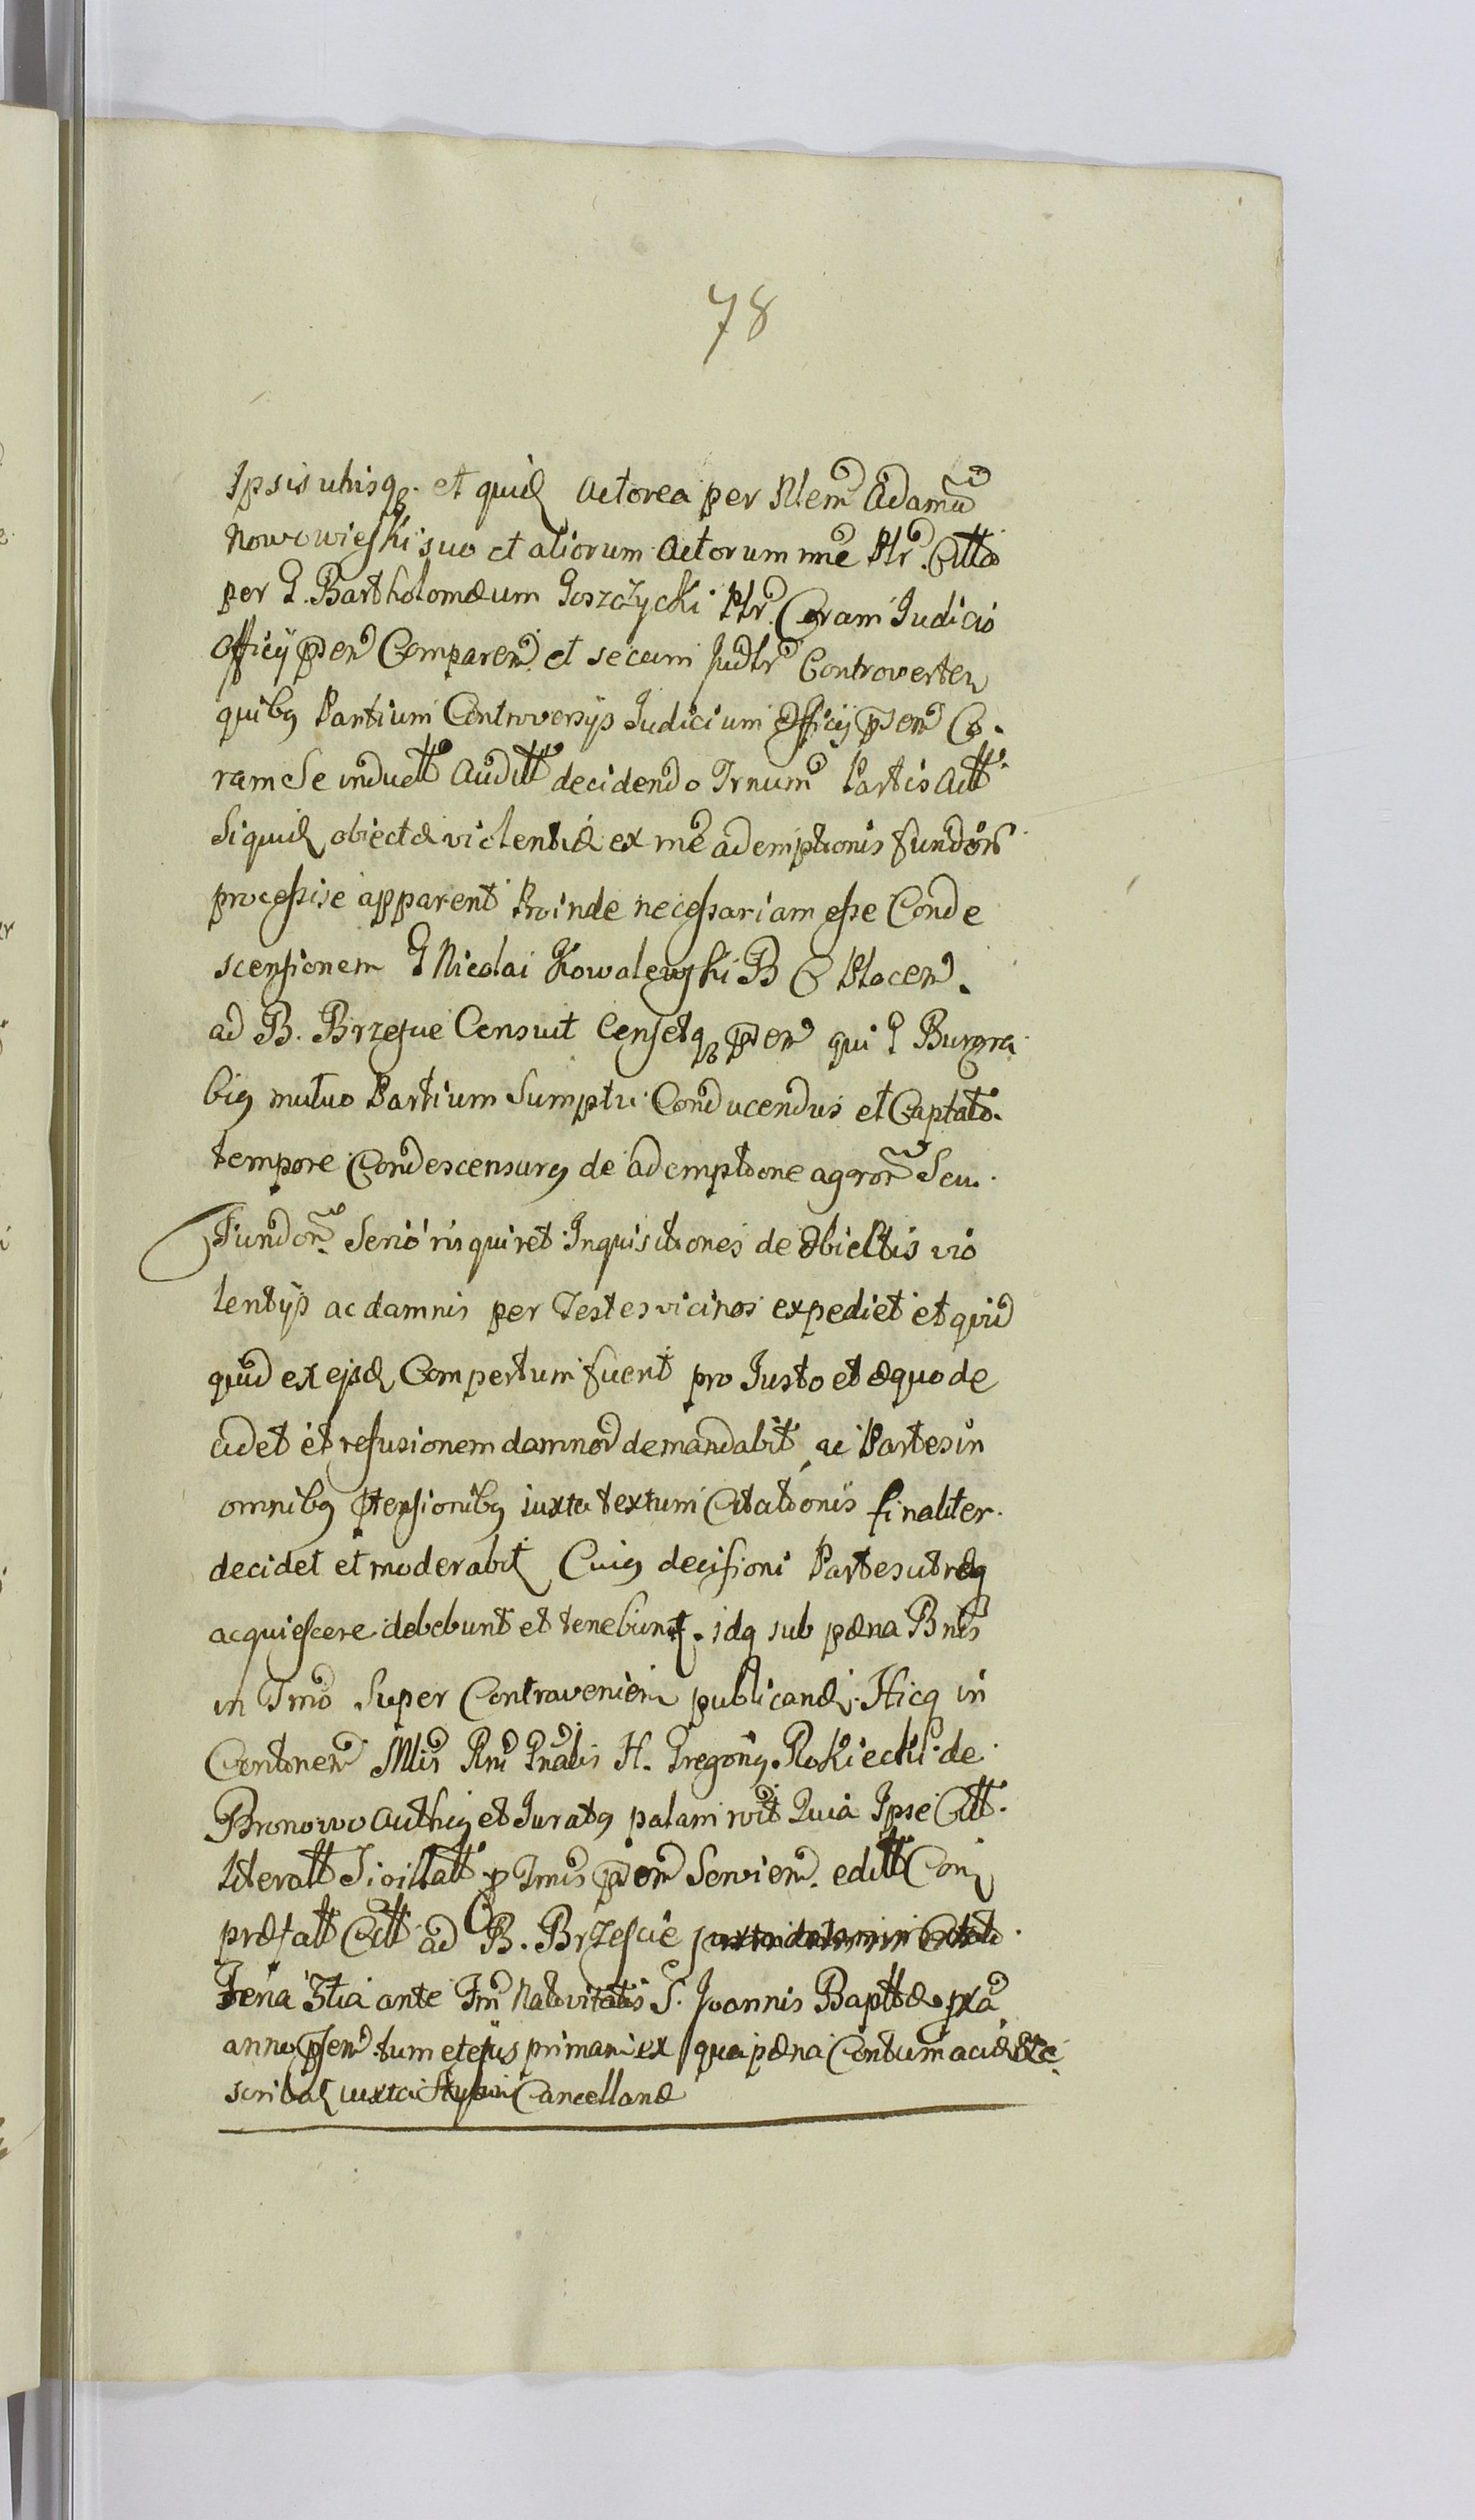 78
Ipsis utrisq. et quid Actorea per Nlem Adamū
Nowowieski suo et aliorum Actorum nne Pltr. Citta
per G. Bartholomæum Goszczycki Pltr. Coram Judicio
Officij psen Comparen. et secum Judlr Controverten
quibq Partium Controversijs Judicium Officij psen Co.
ram Se induett Auditt decidendo Trnum Partis Actt
Siquid obiectæ violentiæ ex rne ademptionis fundor
processise apparent Proinde necessariam esse Conde
scensionem G Nicolai Kowalewski B C Plocen.
ad B. Brzescie Censuit Censetq psen qui G Burgra
biq mutuo Partium Sumptu Conducendus et Captato.
tempore Condescensurq de ademptione agror Seu.
Fundor. Serio risquiret Inquisitiones de Obiectis vio
lentijs ac damnis per Testes vicinos expediet et quid
quid ex ejsd Compertum fuerit pro Justo et æquo de
cidet et refusionem damnor demandabit ac Partes in
omnibq ptensionibq iuxta textum Citationis finaliter.
decidet et moderabit Cuiq decisioni Partes utræq
acquiescere debebunt et tenebunt. idq sub pæna Bnis
in Tmo Super Contravenien publicand. Hicq in
Contonen Mlis Rni Gnalis H. Gregoriq. Rokiecki de
Bronowo Authiq et Juratq palam rvit Quia Ipse Citt.
literatt Sigillatt p Tmis psen Servien. editt Con
præfatt Citt ad B. Brzescie
Feria 3tia ante Fm Nativitatis S. Joannis Bapttæ pxa
anno psen tum et ejus primam ex qua pæna Contumaciæ &c
scribat iuxta Stylum Cancellariæ